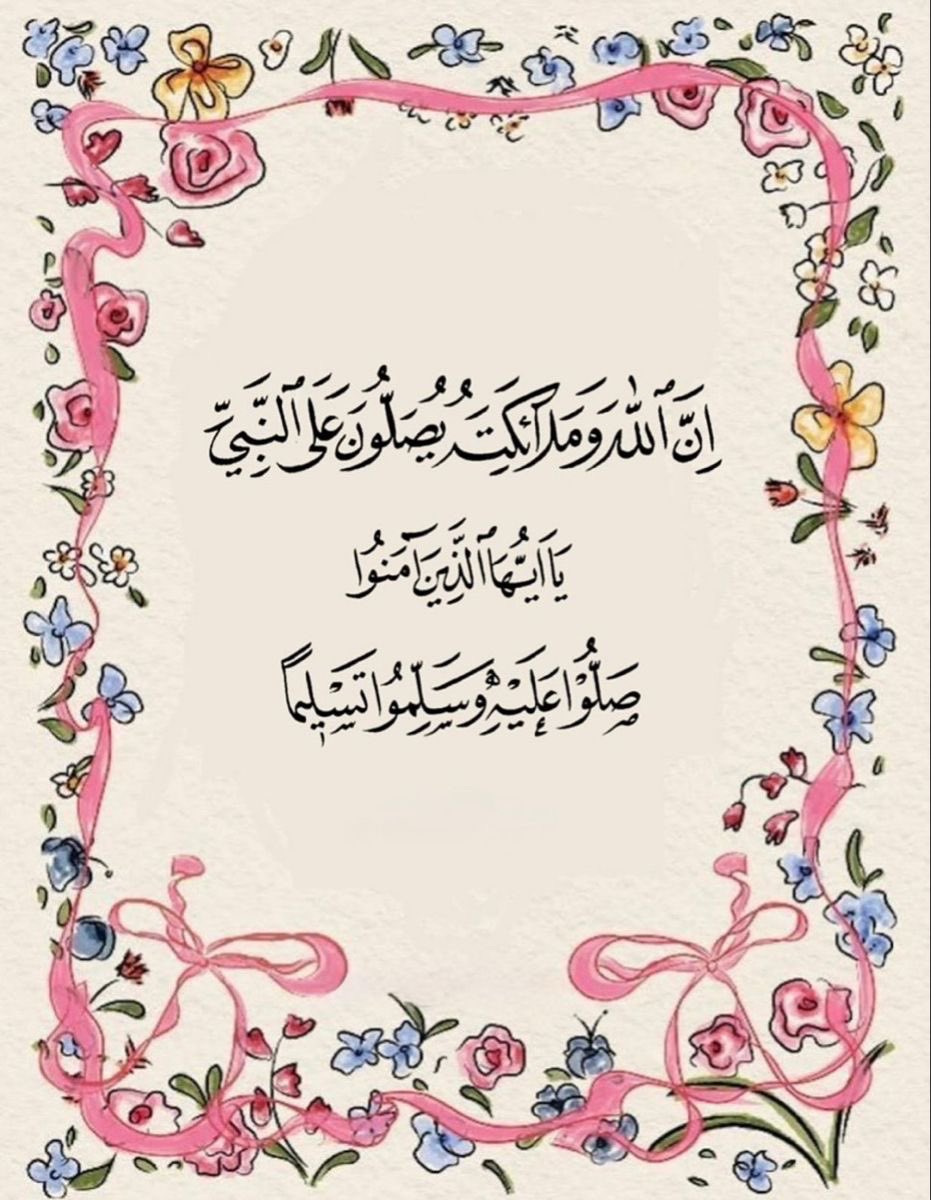 اِنَّ ٱللّٰهَ وَمَلَائِكَتَهُ يُصَلُّونَ عَلَى ٱلنَّبِيِّ
يَا اَيُّهَا ٱلَّذِينَ آمَنُوا
صَلُّوْا عَلَيْهِ وَسَلِّمُوا تَسْلِيمًا